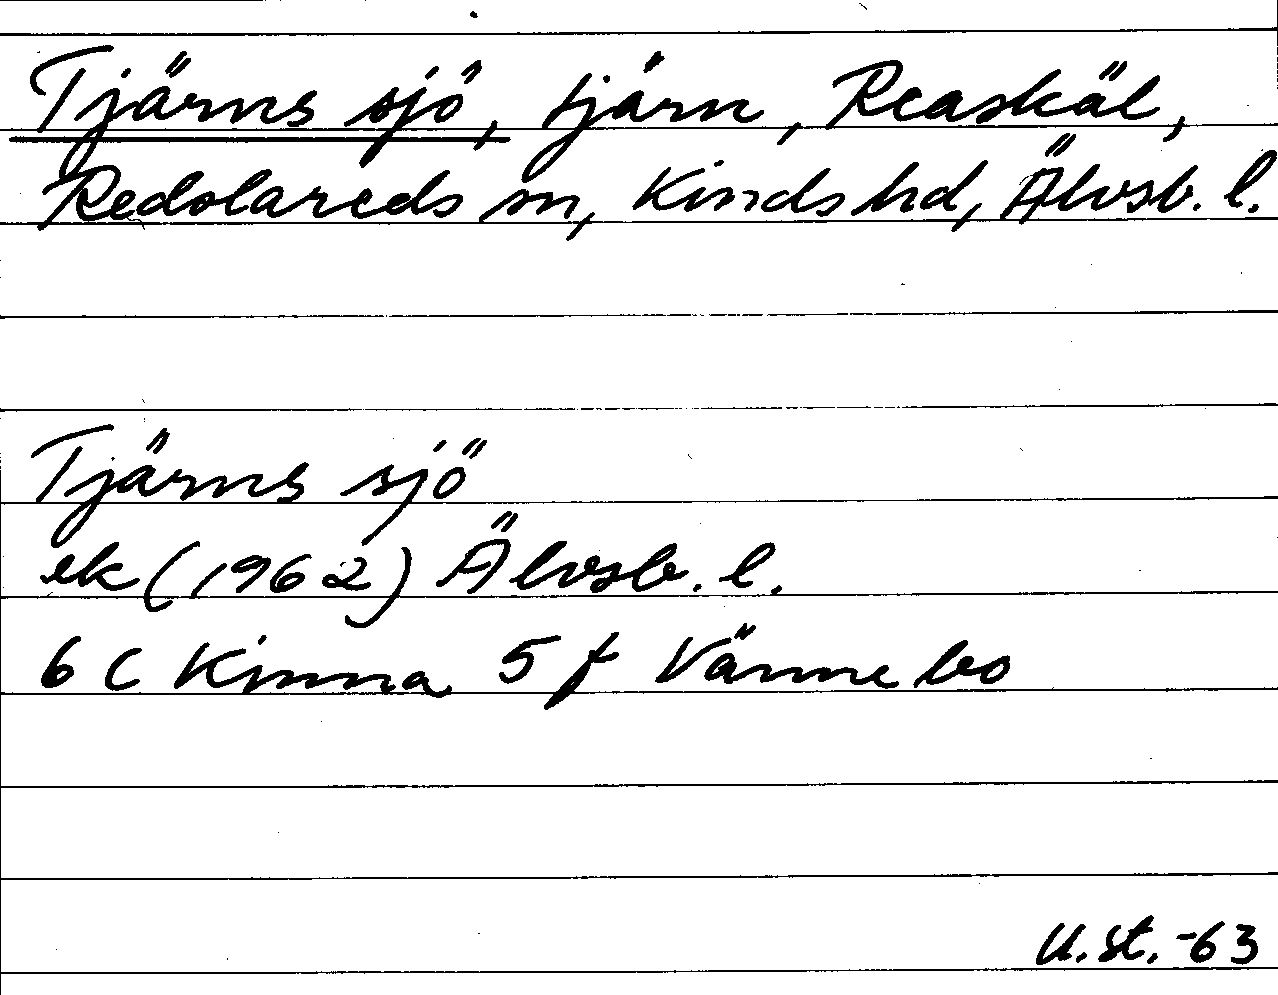 Tjärns sjö, tjärn, Reaskäl,
Redslareds sn, Kinds hd, Älvsb. l.
Tjärns sjö
ek (1962) Älvsb. l.
6 C Kinna 5 f Vännebo
U.St. -63